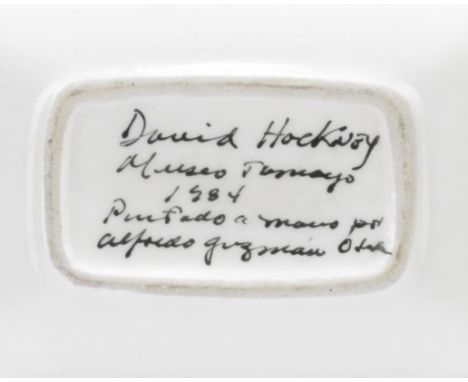 David Hockney
Museo Tamayo
1984
Pintado a mano por
alfredo guzmán